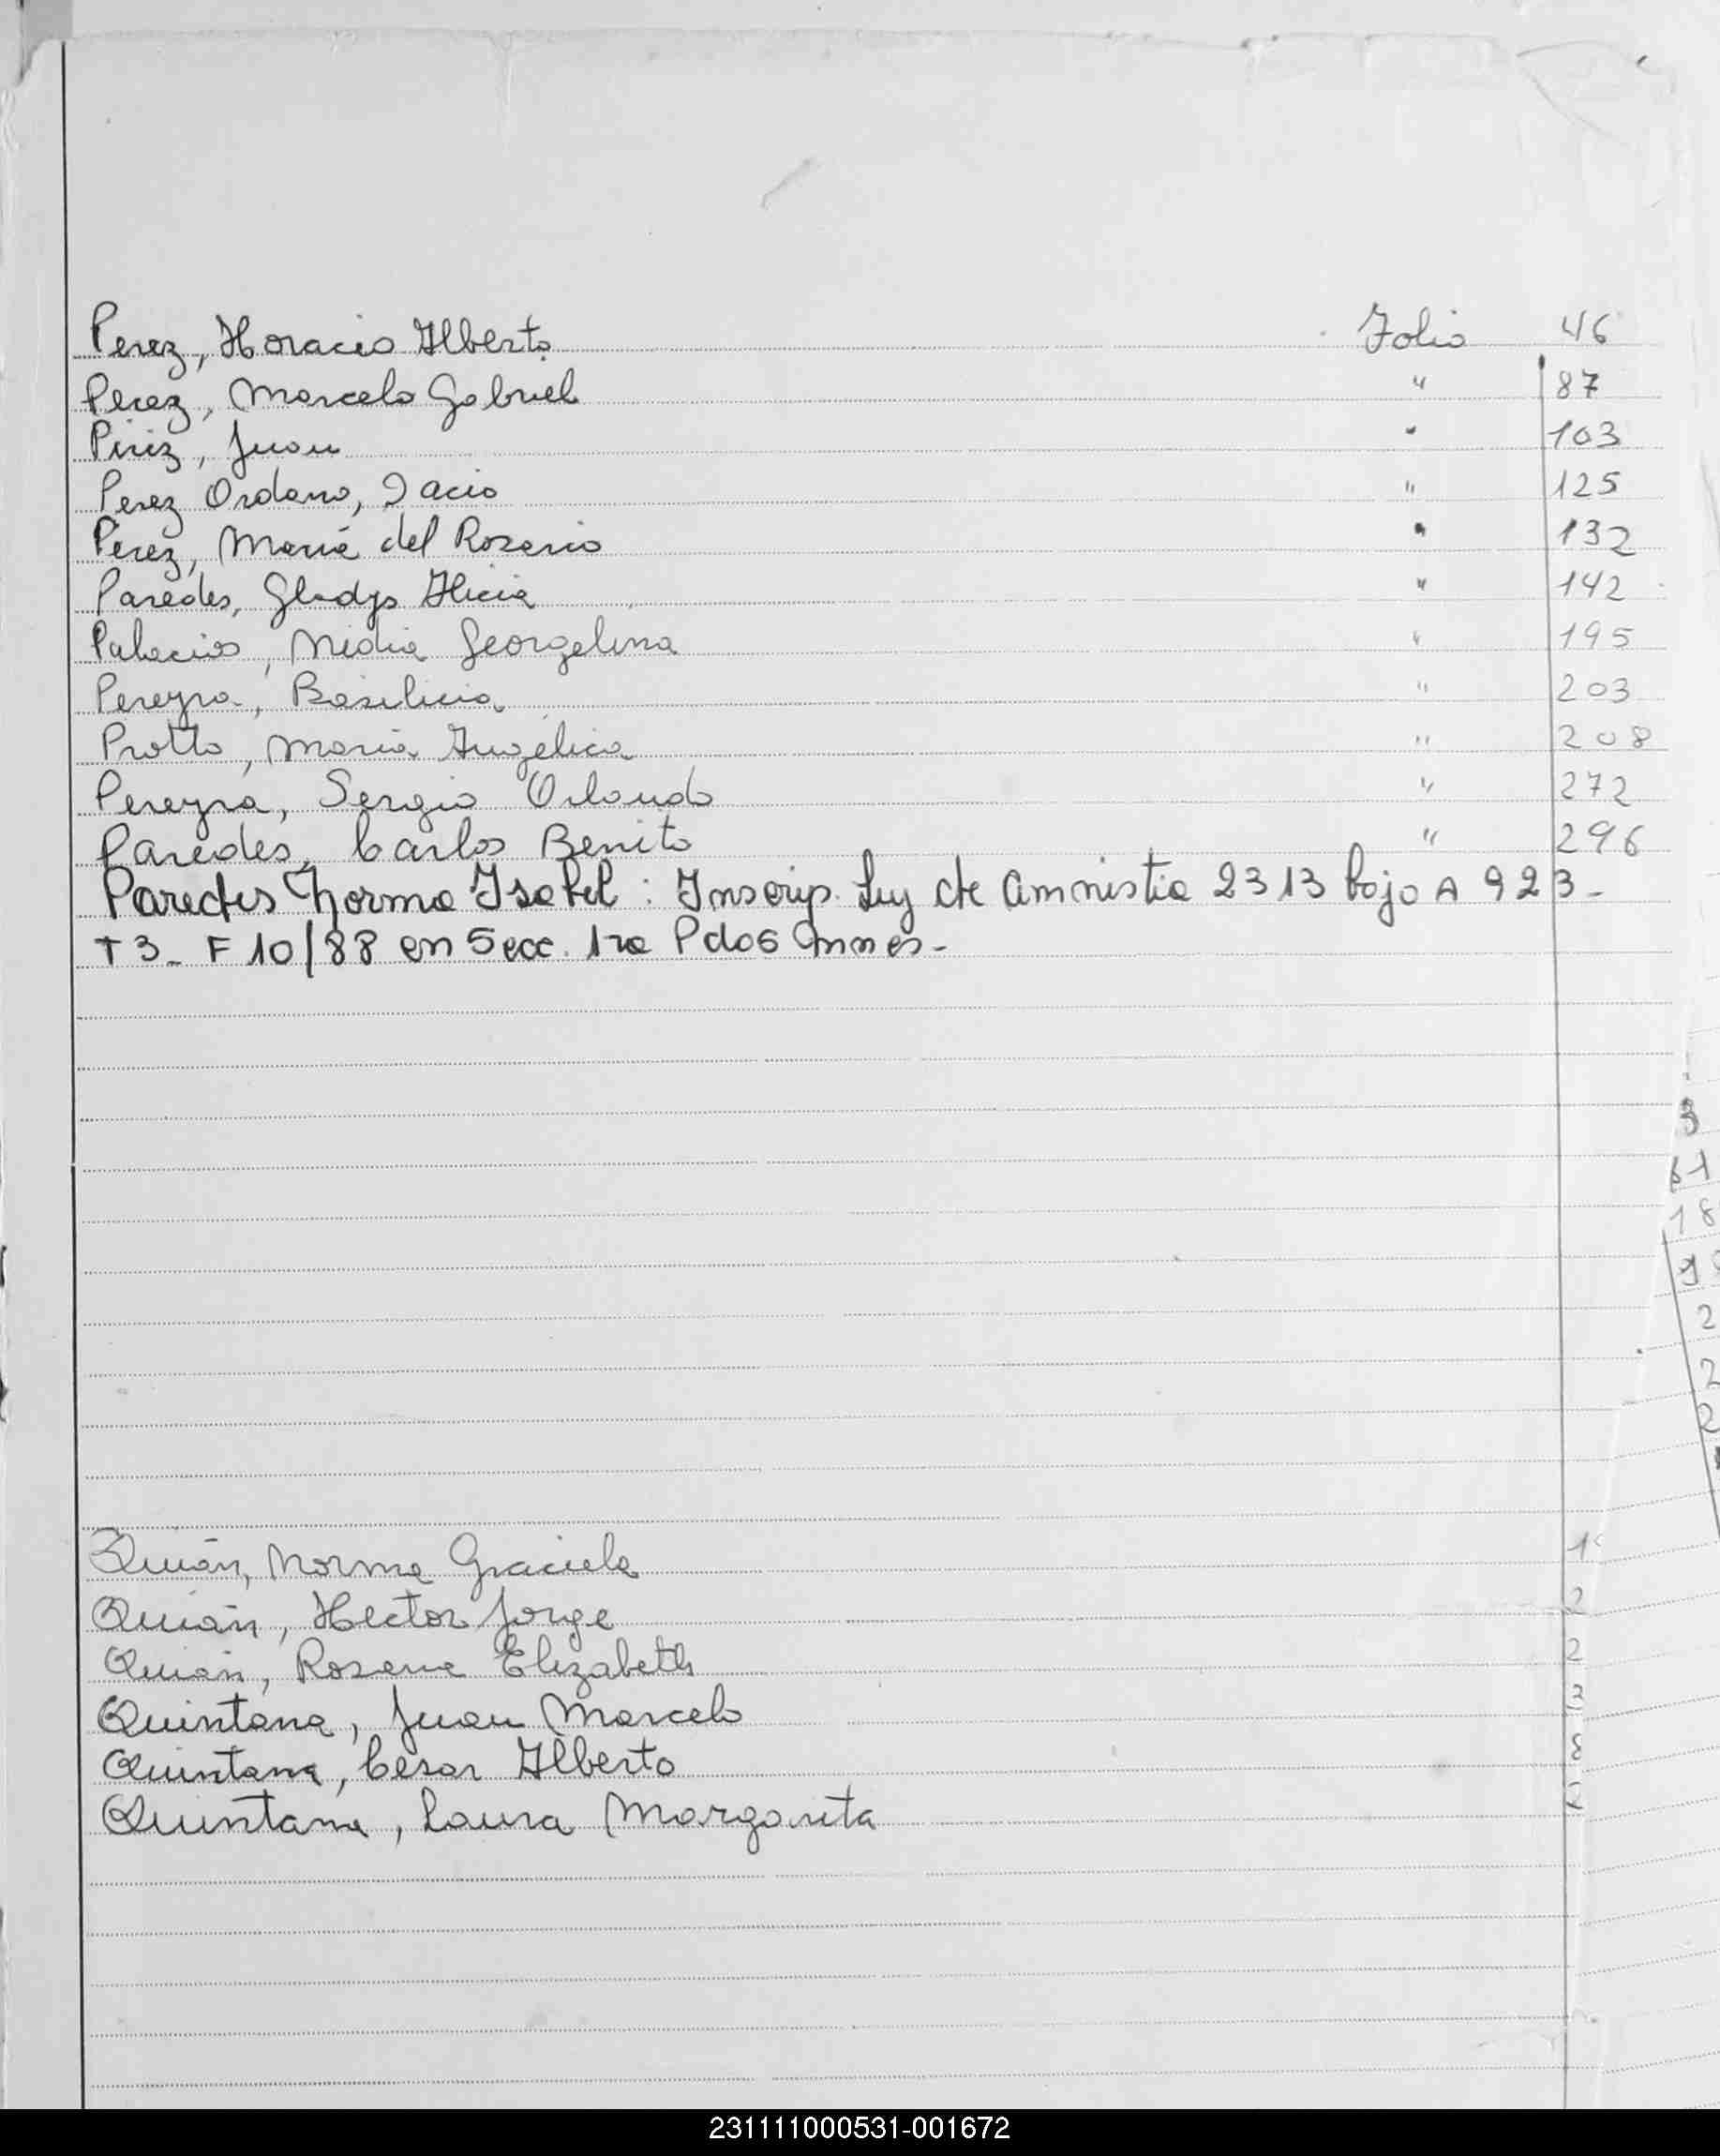 Perez, Horacio Alberto Folio 46
Perez, Marcelo Gabriel " 87
Piriz, Juan " 103
Perez Ordano, Dacio " 125
Perez, Maria del Rosario " 132
Paredes, Gladys Alicia " 142
Palacios, Nidia Georgelina " 195
Pereyra, Basilicia " 203
Protto, Maria Angélica " 208
Pereyra, Sergio Orlando " 272
Paredes, Carlos Benito " 296
Paredes Norma Isabel: Inscrip. Ley de Amnistia 2313 bajo A 923-
T3- F 10/88 en Secc. 1ra Pdos
Quián, Norma Graciela
Quián, Hector Jorge 2
Quián, Rosana Elizabeth 2
Quintana, Juan Marcelo 3
Quintana, Cesar Alberto 8
Quintana, Laura Margarita 2
231111000531-001672